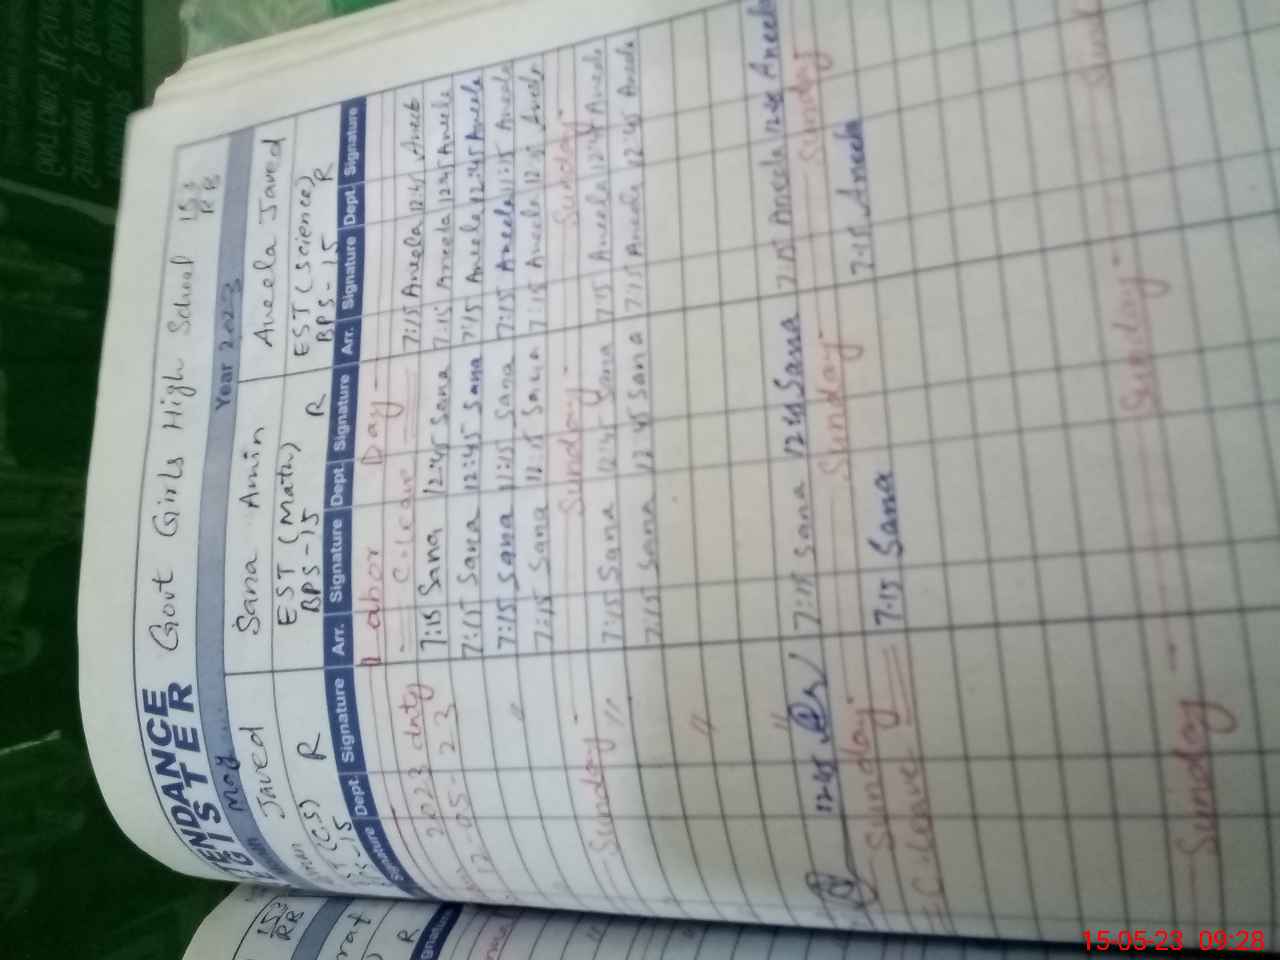 Govt Girls High School 153
RB
TENDANCE
GISTER
May Year 2023
Javed Sana Amin Aneela Javed
EST (Math) EST (Science)
BPS-15 BPS-15
R R R
Signature Dept. Signature Arr. Signature Dept. Signature Arr. Signature Dept. Signature
Labor Day
2023 duty C-leave
12-05-23 7:15 Sana 12:45 Sana 7:15 Aneela 12:45 Aneela
7:15 Sana 12:45 Sana 7:15 Aneela 12:45 Aneela
7:15 Sana 11:15 Sana 7:15 Aneela 12:45 Aneela
" 7:15 Sana 12:15 Sana 7:15 Aneela 11:15 Aneela
7:15 Aneela 12:15 Aneela
Sunday Sunday Sunday
" 7:15 Sana 12:45 Sana 7:15 Aneela 12:45 Aneela
7:15 Sana 12:45 Sana 7:15 Aneela 12:45 Aneela
"
" 12:45 7:15 Sana 12:45 Sana 7:15 Aneela 12:45 Aneela
Sunday Sunday Sunday
C-leave 7:15 Sana 7:15 Aneela
Sunday Sunday
153
RB
R
gnature
15-05-23 09:28